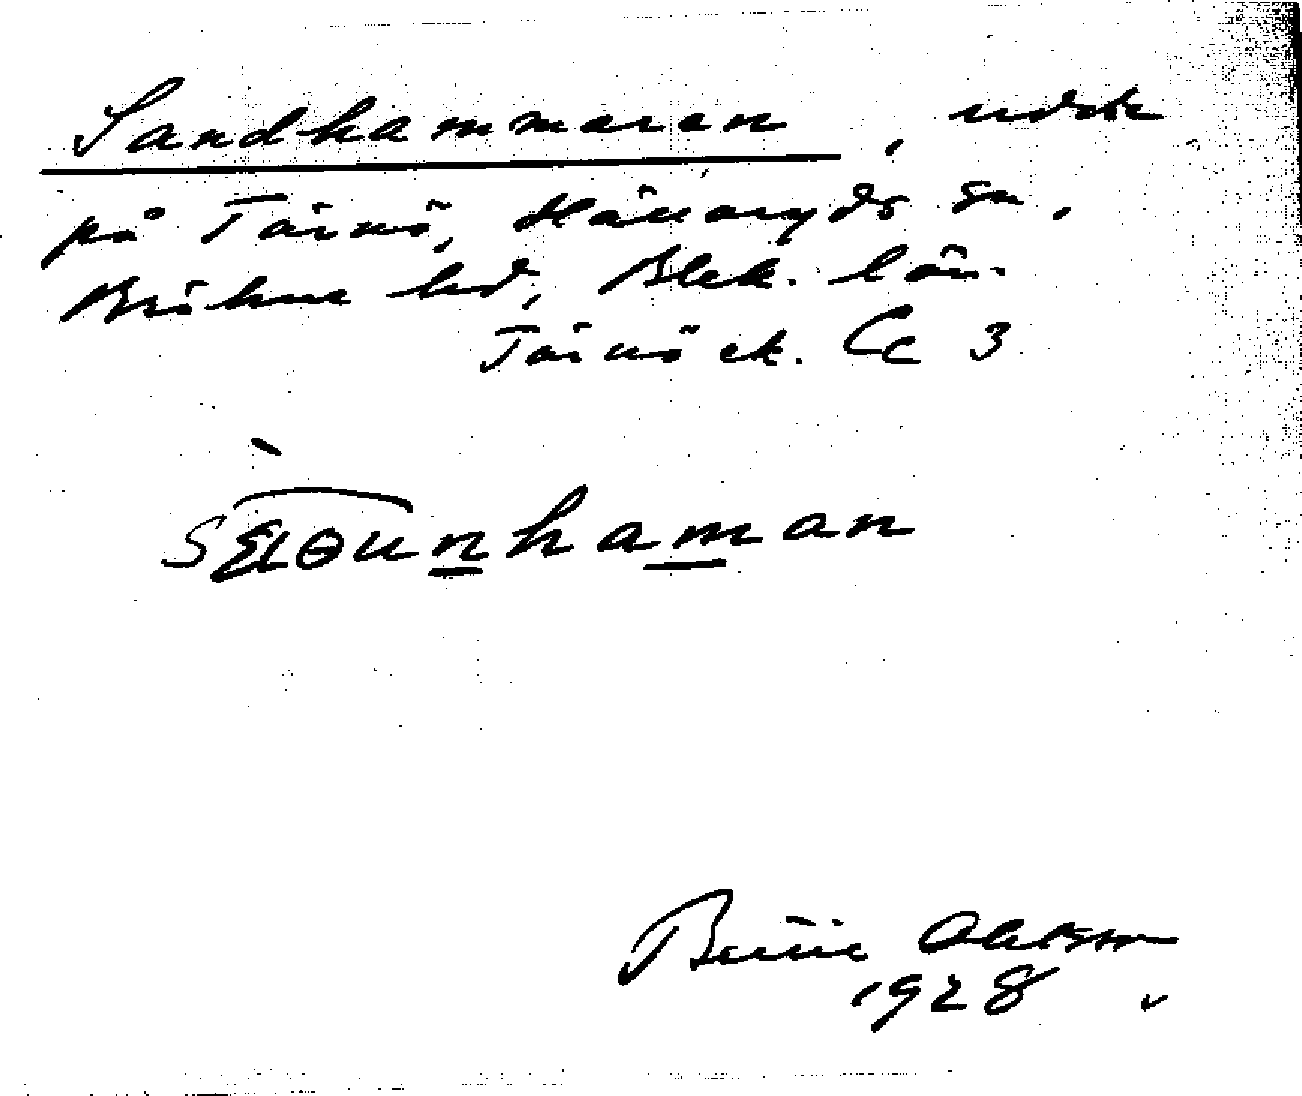 Sandhammaren, udde
på Tärnö, Hällaryds sn.
Bräkne hd, Blek. län.
Tärnö ek. Cc 3
Ohlsson
1928